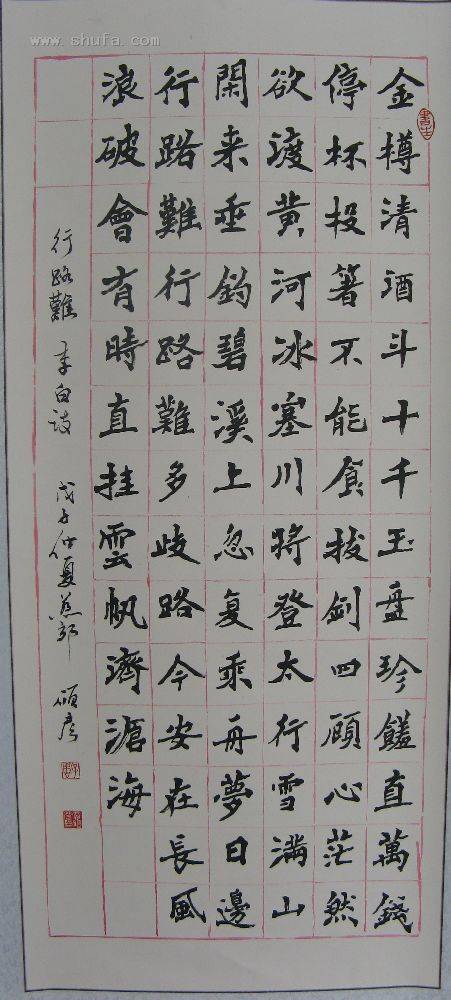 www.shufa.com
金樽清酒斗十千玉盘珍饈直萬錢
停杯投箸不能食拔剑四頋心茫然
欲渡黄河冰塞川将登太行雪滿山
閑来垂釣碧溪上忽复乘舟夢日邊
行路難行路難多歧路今安在長風
浪破會有時直挂雲帆濟滄海
行路難 李白诗 戊子仲夏